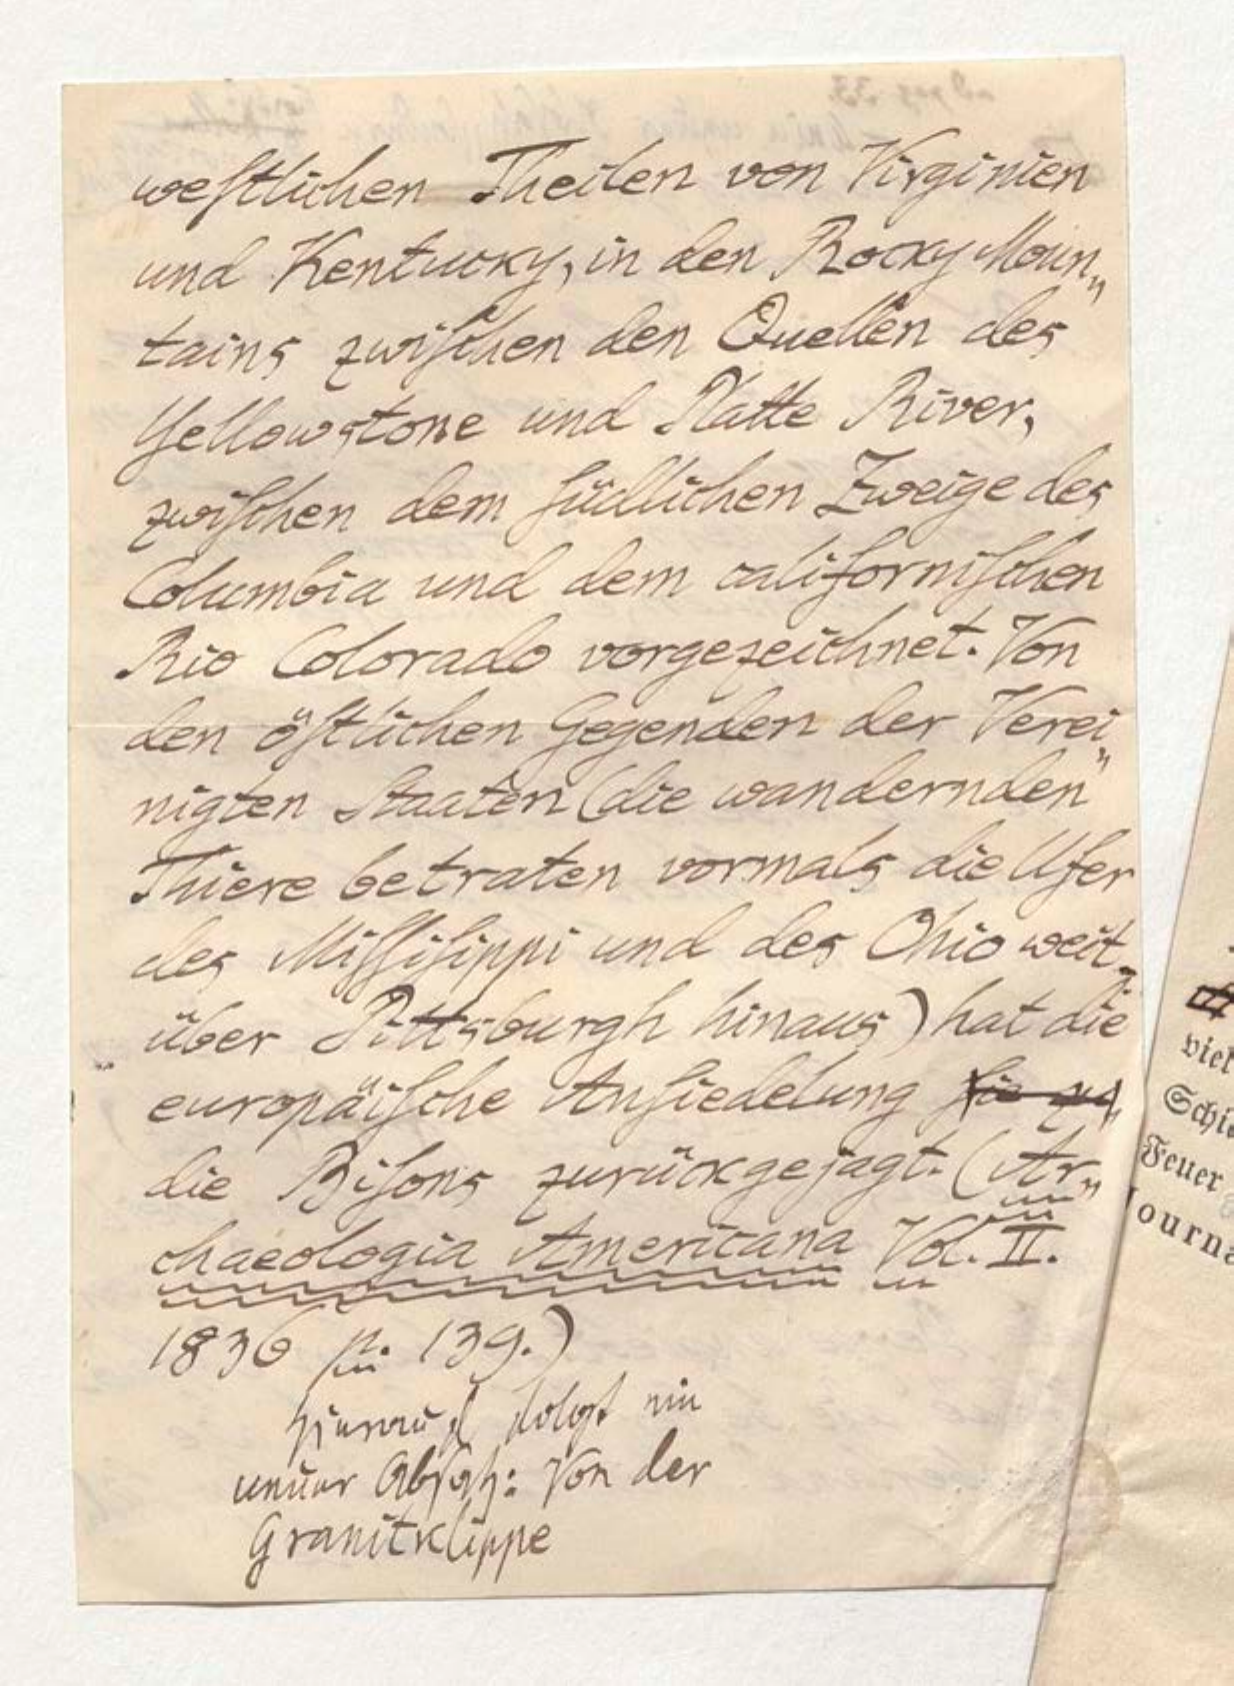 weſtlichen Theilen von Virginien
und Kentucky, in den Rocky Moun„
tains zwiſchen den Quellen des
Yellowstone und Platte River,
zwiſchen dem ſüdlichen Zweige des
Columbia und dem californiſchen
Rio Colorado vorgezeichnet. Von
den öſtlichen Gegenden der Verei„
nigten Staaten (die wandernden
Thiere betraten vormals die Ufer
des Miſſiſippi und des Ohio weit
über Pittsburgh hinaus) hat die
europäiſche Anſiedelung ſie zu
die Biſons zurückgejagt. (Ar„
chaeologia Americana Vol. II.
1836 p. 139.)
hierauf folgt ein
neuer Abſatz: Von der
Granitklippe
viel
Schi
Feuer
Journa